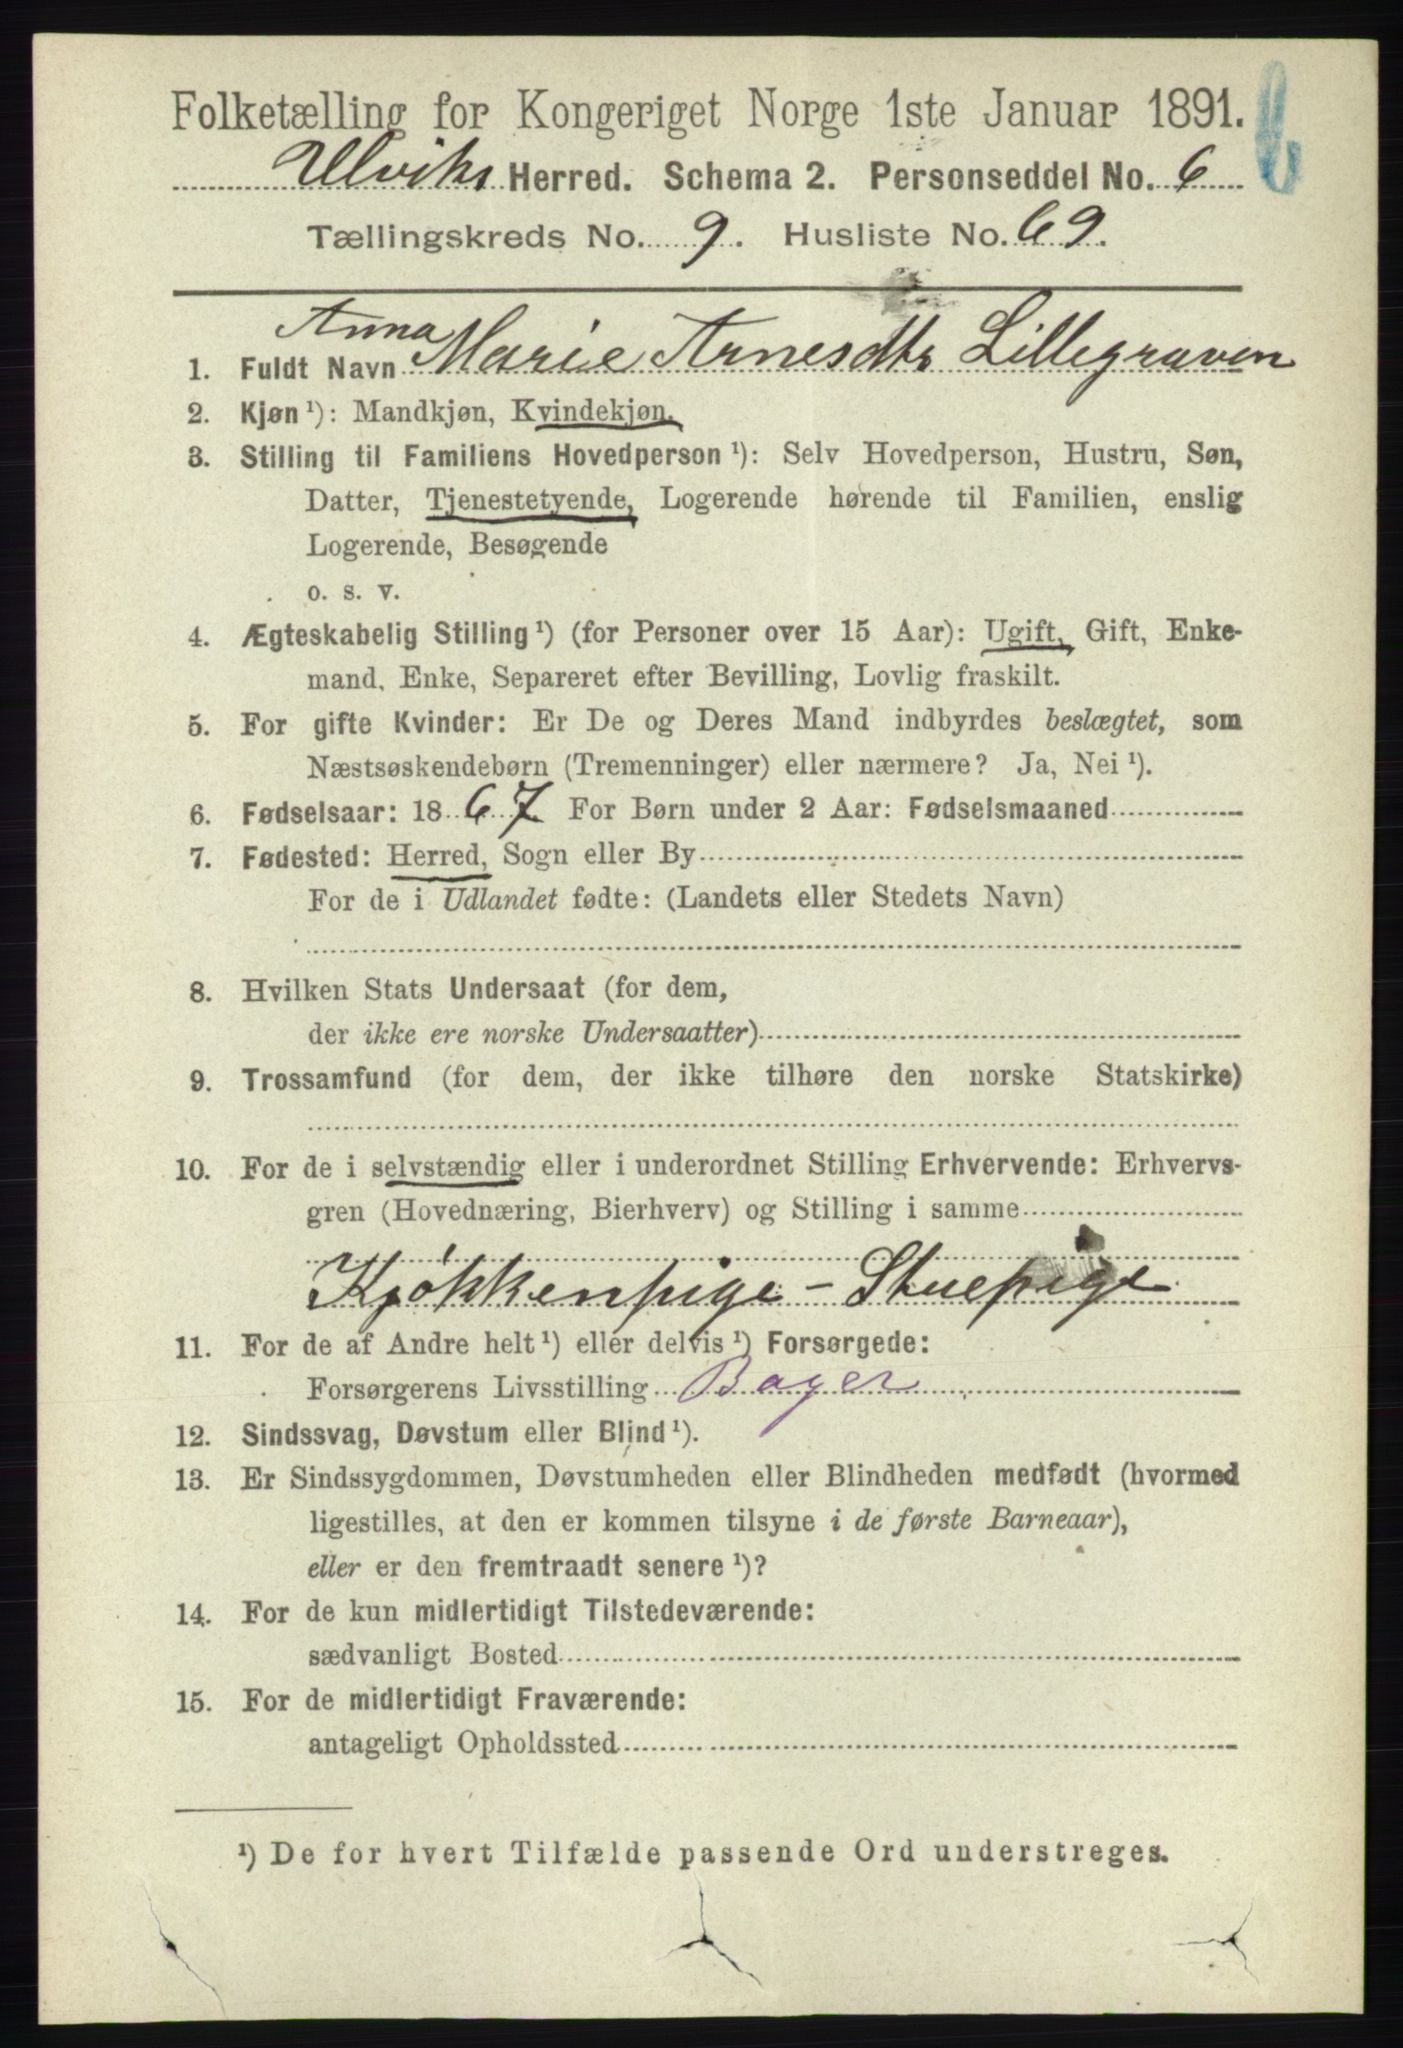 Folketælling for Kongeriget Norge 1ste Januar 1891.
Ulviks Herred. Schema 2. Personseddel No. 6
Tællingskreds No. 9. Husliste No. 69.
Anna
1. Fuldt Navn Marie Arnesdtr Lillegraven
2. Kjøn ¹): Mandkjøn, Kvindekjøn.
3. Stilling til Familiens Hovedperson ¹): Selv Hovedperson, Hustru, Søn,
Datter, Tjenestetyende, Logerende hørende til Familien, enslig
Logerende, Besøgende
o. s. v.
4. Ægteskabelig Stilling ¹) (for Personer over 15 Aar): Ugift, Gift, Enke-
mand, Enke, Separeret efter Bevilling, Lovlig fraskilt.
5. For gifte Kvinder: Er De og Deres Mand indbyrdes beslægtet, som
Næstsøskendebørn (Tremenninger) eller nærmere? Ja, Nei ¹).
6. Fødselsaar: 1867 For Børn under 2 Aar: Fødselsmaaned
7. Fødested: Herred, Sogn eller By
For de i Udlandet fødte: (Landets eller Stedets Navn)
8. Hvilken Stats Undersaat (for dem,
der ikke ere norske Undersaatter)
9. Trossamfund (for dem, der ikke tilhøre den norske Statskirke)
10. For de i selvstændig eller i underordnet Stilling Erhvervende: Erhvervs-
gren (Hovednæring, Bierhverv) og Stilling i samme
Kjøkkenpige - Stuepige
11. For de af Andre helt ¹) eller delvis ¹) Forsørgede:
Forsørgerens Livsstilling Bager
12. Sindssvag, Døvstum eller Blind ¹).
13. Er Sindssygdommen, Døvstumheden eller Blindheden medfødt (hvormed
ligestilles, at den er kommen tilsyne i de første Barneaar),
eller er den fremtraadt senere ¹)?
14. For de kun midlertidigt Tilstedeværende:
sædvanligt Bosted
15. For de midlertidigt Fraværende:
antageligt Opholdssted
¹) De for hvert Tilfælde passende Ord understreges.